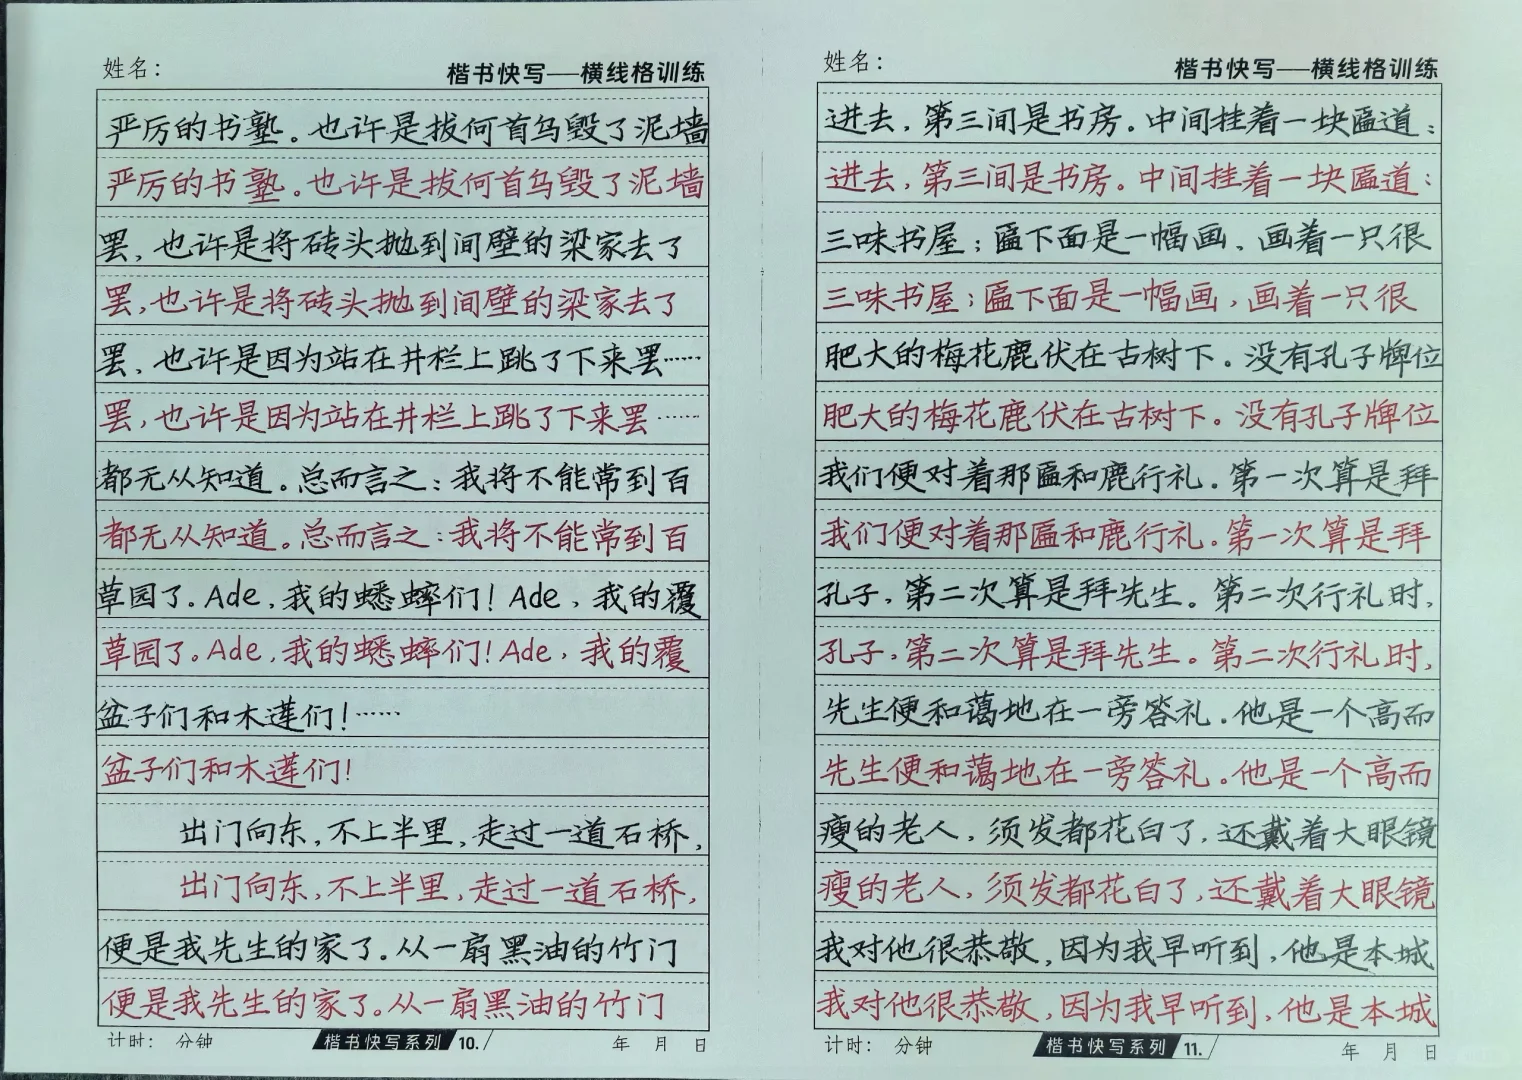 姓名：
楷书快写——横线格训练
严厉的书塾。也许是拔何首乌毁了泥墙
严厉的书塾。也许是拔何首乌毁了泥墙
罢，也许是将砖头抛到间壁的梁家去了
罢，也许是将砖头抛到间壁的梁家去了
罢，也许是因为站在井栏上跳了下来罢……
罢，也许是因为站在井栏上跳了下来罢……
都无从知道。总而言之：我将不能常到百
都无从知道。总而言之：我将不能常到百
草园了。Ade，我的蟋蟀们！Ade，我的覆
草园了。Ade，我的蟋蟀们！Ade，我的覆
盆子们和木莲们！……
盆子们和木莲们！
出门向东，不上半里，走过一道石桥，
出门向东，不上半里，走过一道石桥，
便是我先生的家了。从一扇黑油的竹门
便是我先生的家了。从一扇黑油的竹门
计时： 分钟
楷书快写系列 10.
年 月 日
姓名：
楷书快写——横线格训练
进去，第三间是书房。中间挂着一块匾道：
进去，第三间是书房。中间挂着一块匾道：
三味书屋；匾下面是一幅画，画着一只很
三味书屋；匾下面是一幅画，画着一只很
肥大的梅花鹿伏在古树下。没有孔子牌位
肥大的梅花鹿伏在古树下。没有孔子牌位
我们便对着那匾和鹿行礼。第一次算是拜
我们便对着那匾和鹿行礼。第一次算是拜
孔子，第二次算是拜先生。第二次行礼时，
孔子，第二次算是拜先生。第二次行礼时，
先生便和蔼地在一旁答礼。他是一个高而
先生便和蔼地在一旁答礼。他是一个高而
瘦的老人，须发都花白了，还戴着大眼镜
瘦的老人，须发都花白了，还戴着大眼镜
我对他很恭敬，因为我早听到，他是本城
我对他很恭敬，因为我早听到，他是本城
计时： 分钟
楷书快写系列 11.
年 月 日